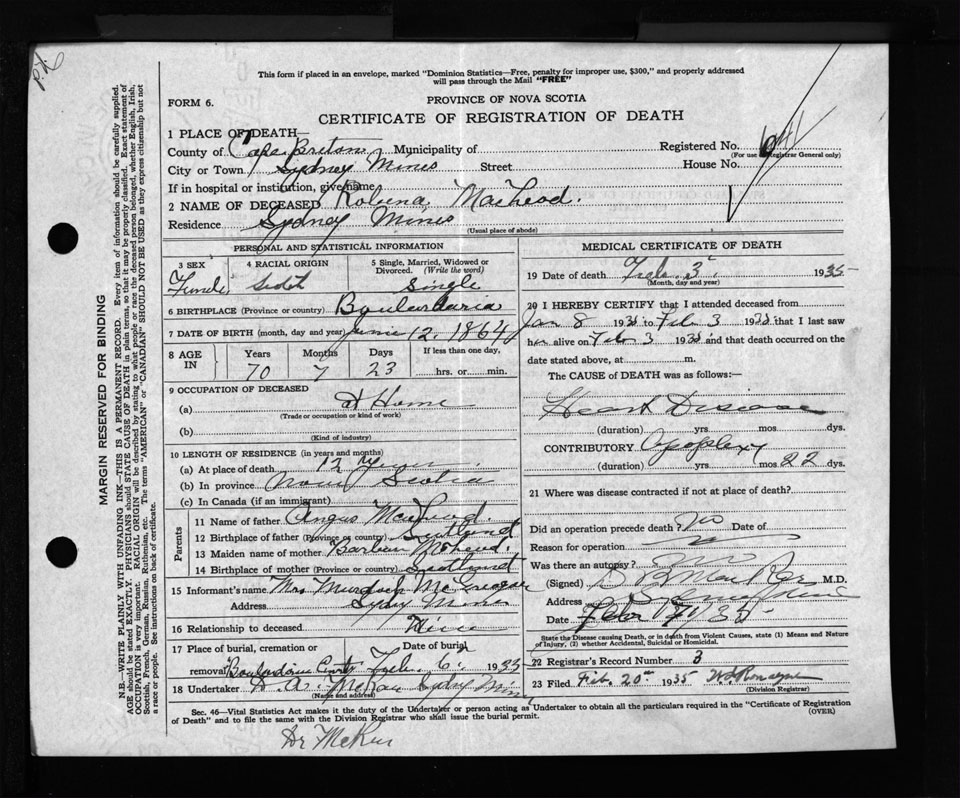 This form if placed in an envelope, marked "Dominion Statistics—Free, penalty for improper use, $300," and properly addressed
will pass through the Mail "FREE"
FORM 6.
PROVINCE OF NOVA SCOTIA
CERTIFICATE OF REGISTRATION OF DEATH
1 PLACE OF DEATH—
County of Cape Breton Municipality of Registered No.
(For use of Registrar General only)
City or Town Sydney Mines Street House No.
If in hospital or institution, give name
2 NAME OF DECEASED MacLeod.
Residence Sydney Mines
(Usual place of abode)
PERSONAL AND STATISTICAL INFORMATION
3 SEX
4 RACIAL ORIGIN
5 Single, Married, Widowed or
Divorced. (Write the word)
Single
6 BIRTHPLACE (Province or country) Boularderie
7 DATE OF BIRTH (month, day and year) June 12. 1864
8 AGE IN
Years Months Days If less than one day,
70 7 23 hrs. or min.
9 OCCUPATION OF DECEASED
(a) at Home
(Trade or occupation or kind of work)
(b)
(Kind of industry)
10 LENGTH OF RESIDENCE (in years and months)
(a) At place of death 12 years
(b) In province Nova Scotia
(c) In Canada (if an immigrant)
Parents
11 Name of father Angus MacLeod
12 Birthplace of father (Province or country) Scotland
13 Maiden name of mother Barbara McLeod.
14 Birthplace of mother (Province or country) Scotland
15 Informant's name Mrs Murdoch McGregor
Address Sydney Mines
16 Relationship to deceased Niece
17 Place of burial, cremation or Date of burial
removal Boularderie Feb. 6. 1935
18 Undertaker McRae Sydney Mines
(Name and address)
MEDICAL CERTIFICATE OF DEATH
19 Date of death Feb. 3 1935
(Month, day and year)
20 I HEREBY CERTIFY that I attended deceased from
Jan 8 1935 to Feb 3 1935 that I last saw
her alive on Feb 3 1935 and that death occurred on the
date stated above, at m.
The CAUSE of DEATH was as follows:—
Heart Disease
(duration) yrs. mos. dys.
CONTRIBUTORY Apoplexy
(duration) yrs. mos 22 dys.
21 Where was disease contracted if not at place of death?
Did an operation precede death? No Date of
Reason for operation
Was there an autopsy?
(Signed) M.D.
Address Sydney Mines
Date
State the Disease causing Death, or in death from Violent Causes, state (1) Means and Nature
of Injury, (2) whether Accidental, Suicidal or Homicidal.
22 Registrar's Record Number 3
23 Filed Feb. 20th 1935
(Division Registrar)
Sec. 46—Vital Statistics Act makes it the duty of the Undertaker or person acting as Undertaker to obtain all the particulars required in the "Certificate of Registration
of Death" and to file the same with the Division Registrar who shall issue the burial permit. (OVER)
MARGIN RESERVED FOR BINDING
N.B.—WRITE PLAINLY WITH UNFADING INK—THIS IS A PERMANENT RECORD. Every item of information should be carefully supplied.
AGE should be stated EXACTLY. PHYSICIANS should STATE CAUSE OF DEATH in plain terms, so that it may be properly classified. Exact statement of
OCCUPATION is very important. RACIAL ORIGIN will be described by stating to what people or race the deceased person belonged, whether English, Irish,
Scottish, French, German, Russian, Ruthenian, etc. The terms "AMERICAN" or "CANADIAN" SHOULD NOT BE USED as they express citizenship but not
a race or people. See instructions on back of certificate.